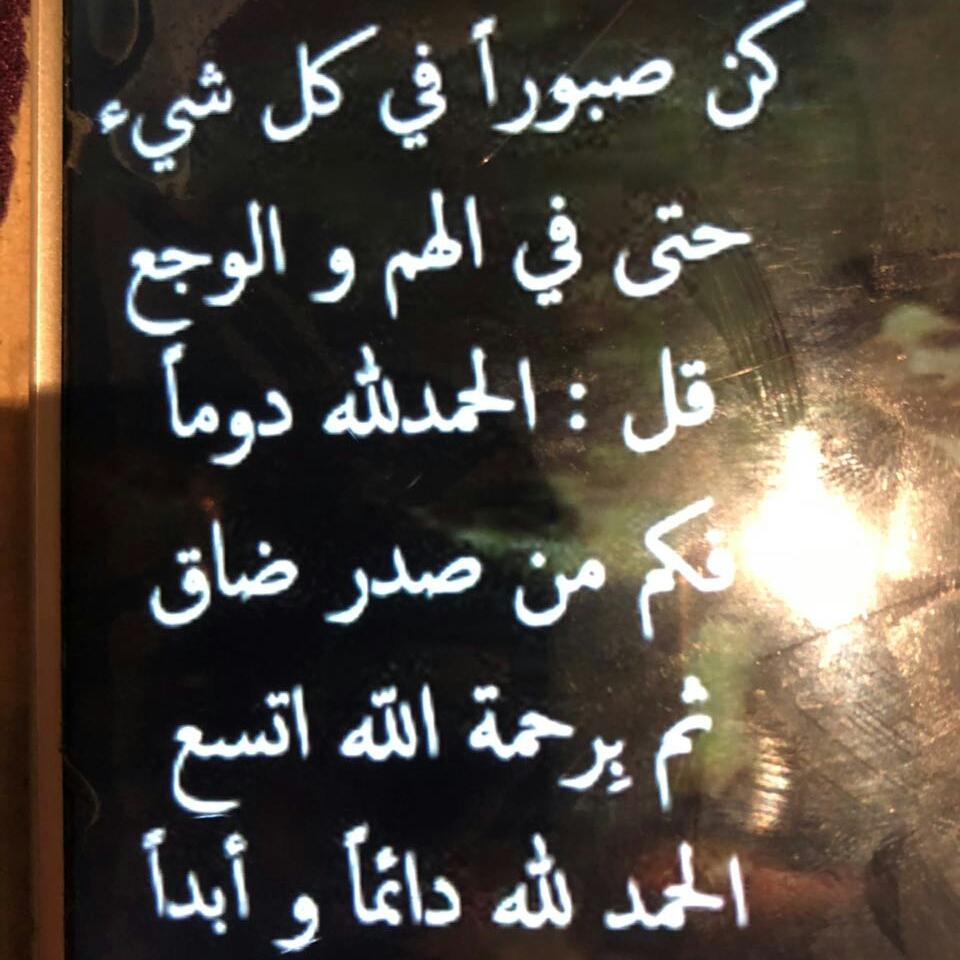 كن صبوراً في كل شيء
حتى في الهم و الوجع
قل : الحمدلله دوماً
فكم من صدر ضاق
ثم بِرحمة الله اتسع
الحمد لله دائماً و أبداً